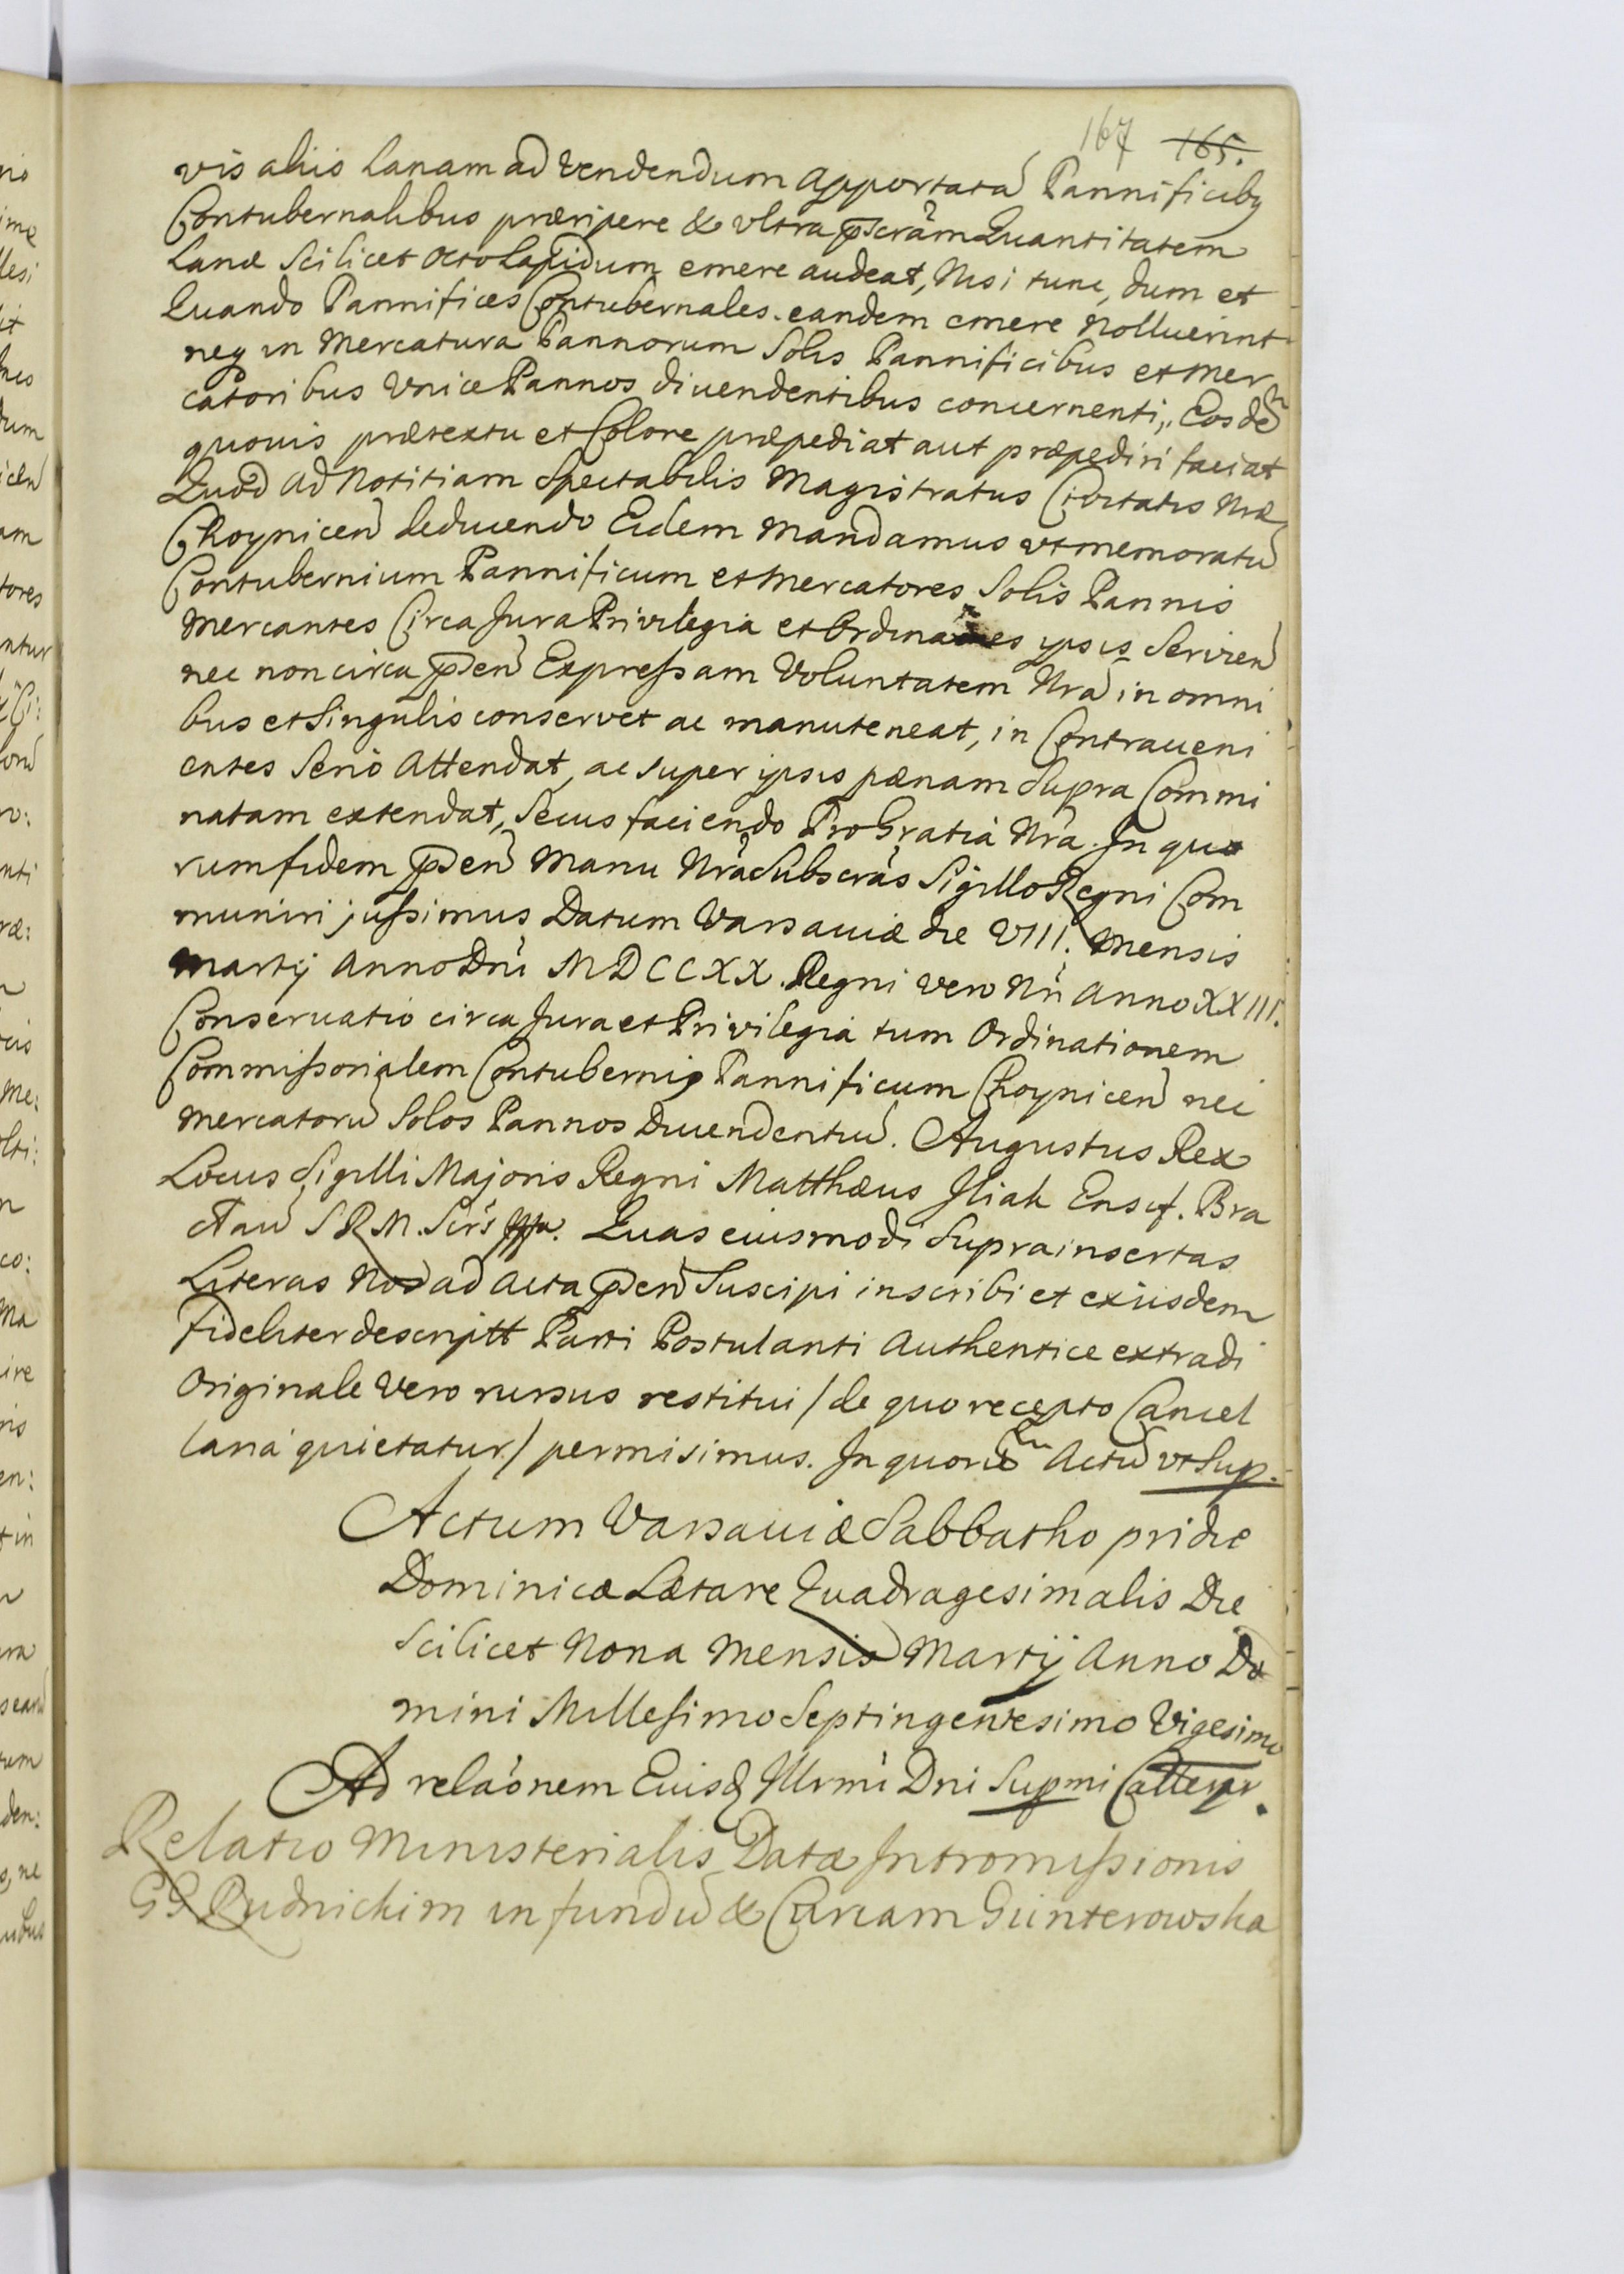 167 165.
vis aliis Lanam ad vendendum apportatā Pannificibq
Contubernalibus præripere & vltra pscrām Quantitatem
Lanæ Scilicet Octo Lapidum emere audeat, Nisi tunc, dum et
Quando Pannifices Contubernales eandem emere Nolluerint
neq in Mercatura Pannorum Solis Pannificibus et Mer
catoribus Vnice Pannos diuendentibus concernenti, Eosdē
quouis prætextu et Colore præpediat aut præpediri faciat
Quod ad Notitiam Spectabilis Magistratus Ciuitatis Nræ
Choynicen deducendo Eidem Mandamus vt memoratū
Contubernium Pannificum et Mercatores Solis Pannis
Mercantes Circa Jura Privilegia et Ordinaōnes ipsis Servien
nec non circa pšen Expressam Voluntatem Nrā in omni
bus et Singulis conservet ac manuteneat, in Contraueni
entes Serió Attendat, ac super ipsis pænam Supra Commi
natam extendat, Secus faciendo Pro Gratiâ Nrâ. In quo
rum fidem pšen Manu Nrâ Subscrās Sigillo Regni Com
muniri jussimus Datum Varsauiæ die VIII. Mensis
Martij Anno Dni MDCCXX. Regni vero Nri Anno XXIII.
Conseruatio circa Jura et Privilegia tum Ordinationem
Commissorialem Contubernio Pannificum Choynicen nec
Mercatorū Solos Pannos Diuendentiū. Augustus Rex
Locus Sigilli Majoris Regni Matthæus Iliak Ensif. Bra
clau S R M. Scrs mpa. Quas eiusmodi Suprainsertas
Literas Nos ad Acta pšen Suscipi inscribi et exiisdem
fideliter descriptt Parti Postulanti Authentice extradi
Originale Vero rursus restitui /de quo recepto Cancel
lariá quietatur/ permisimus. In quorū Actū vt Sup.
Actum Varsauiæ Sabbatho pridie
Dominicæ Lætare Quadragesimalis Die
Scilicet Nona Mensis Martij Anno Do
mini Millesimo Septingentesimo Vigesimo
Ad relaónem Euisd Illrmi Dni Supmi
Relatio Ministerialis Datæ Intromissionis
GG Rudnickim in fundū & Curiam Günterowska